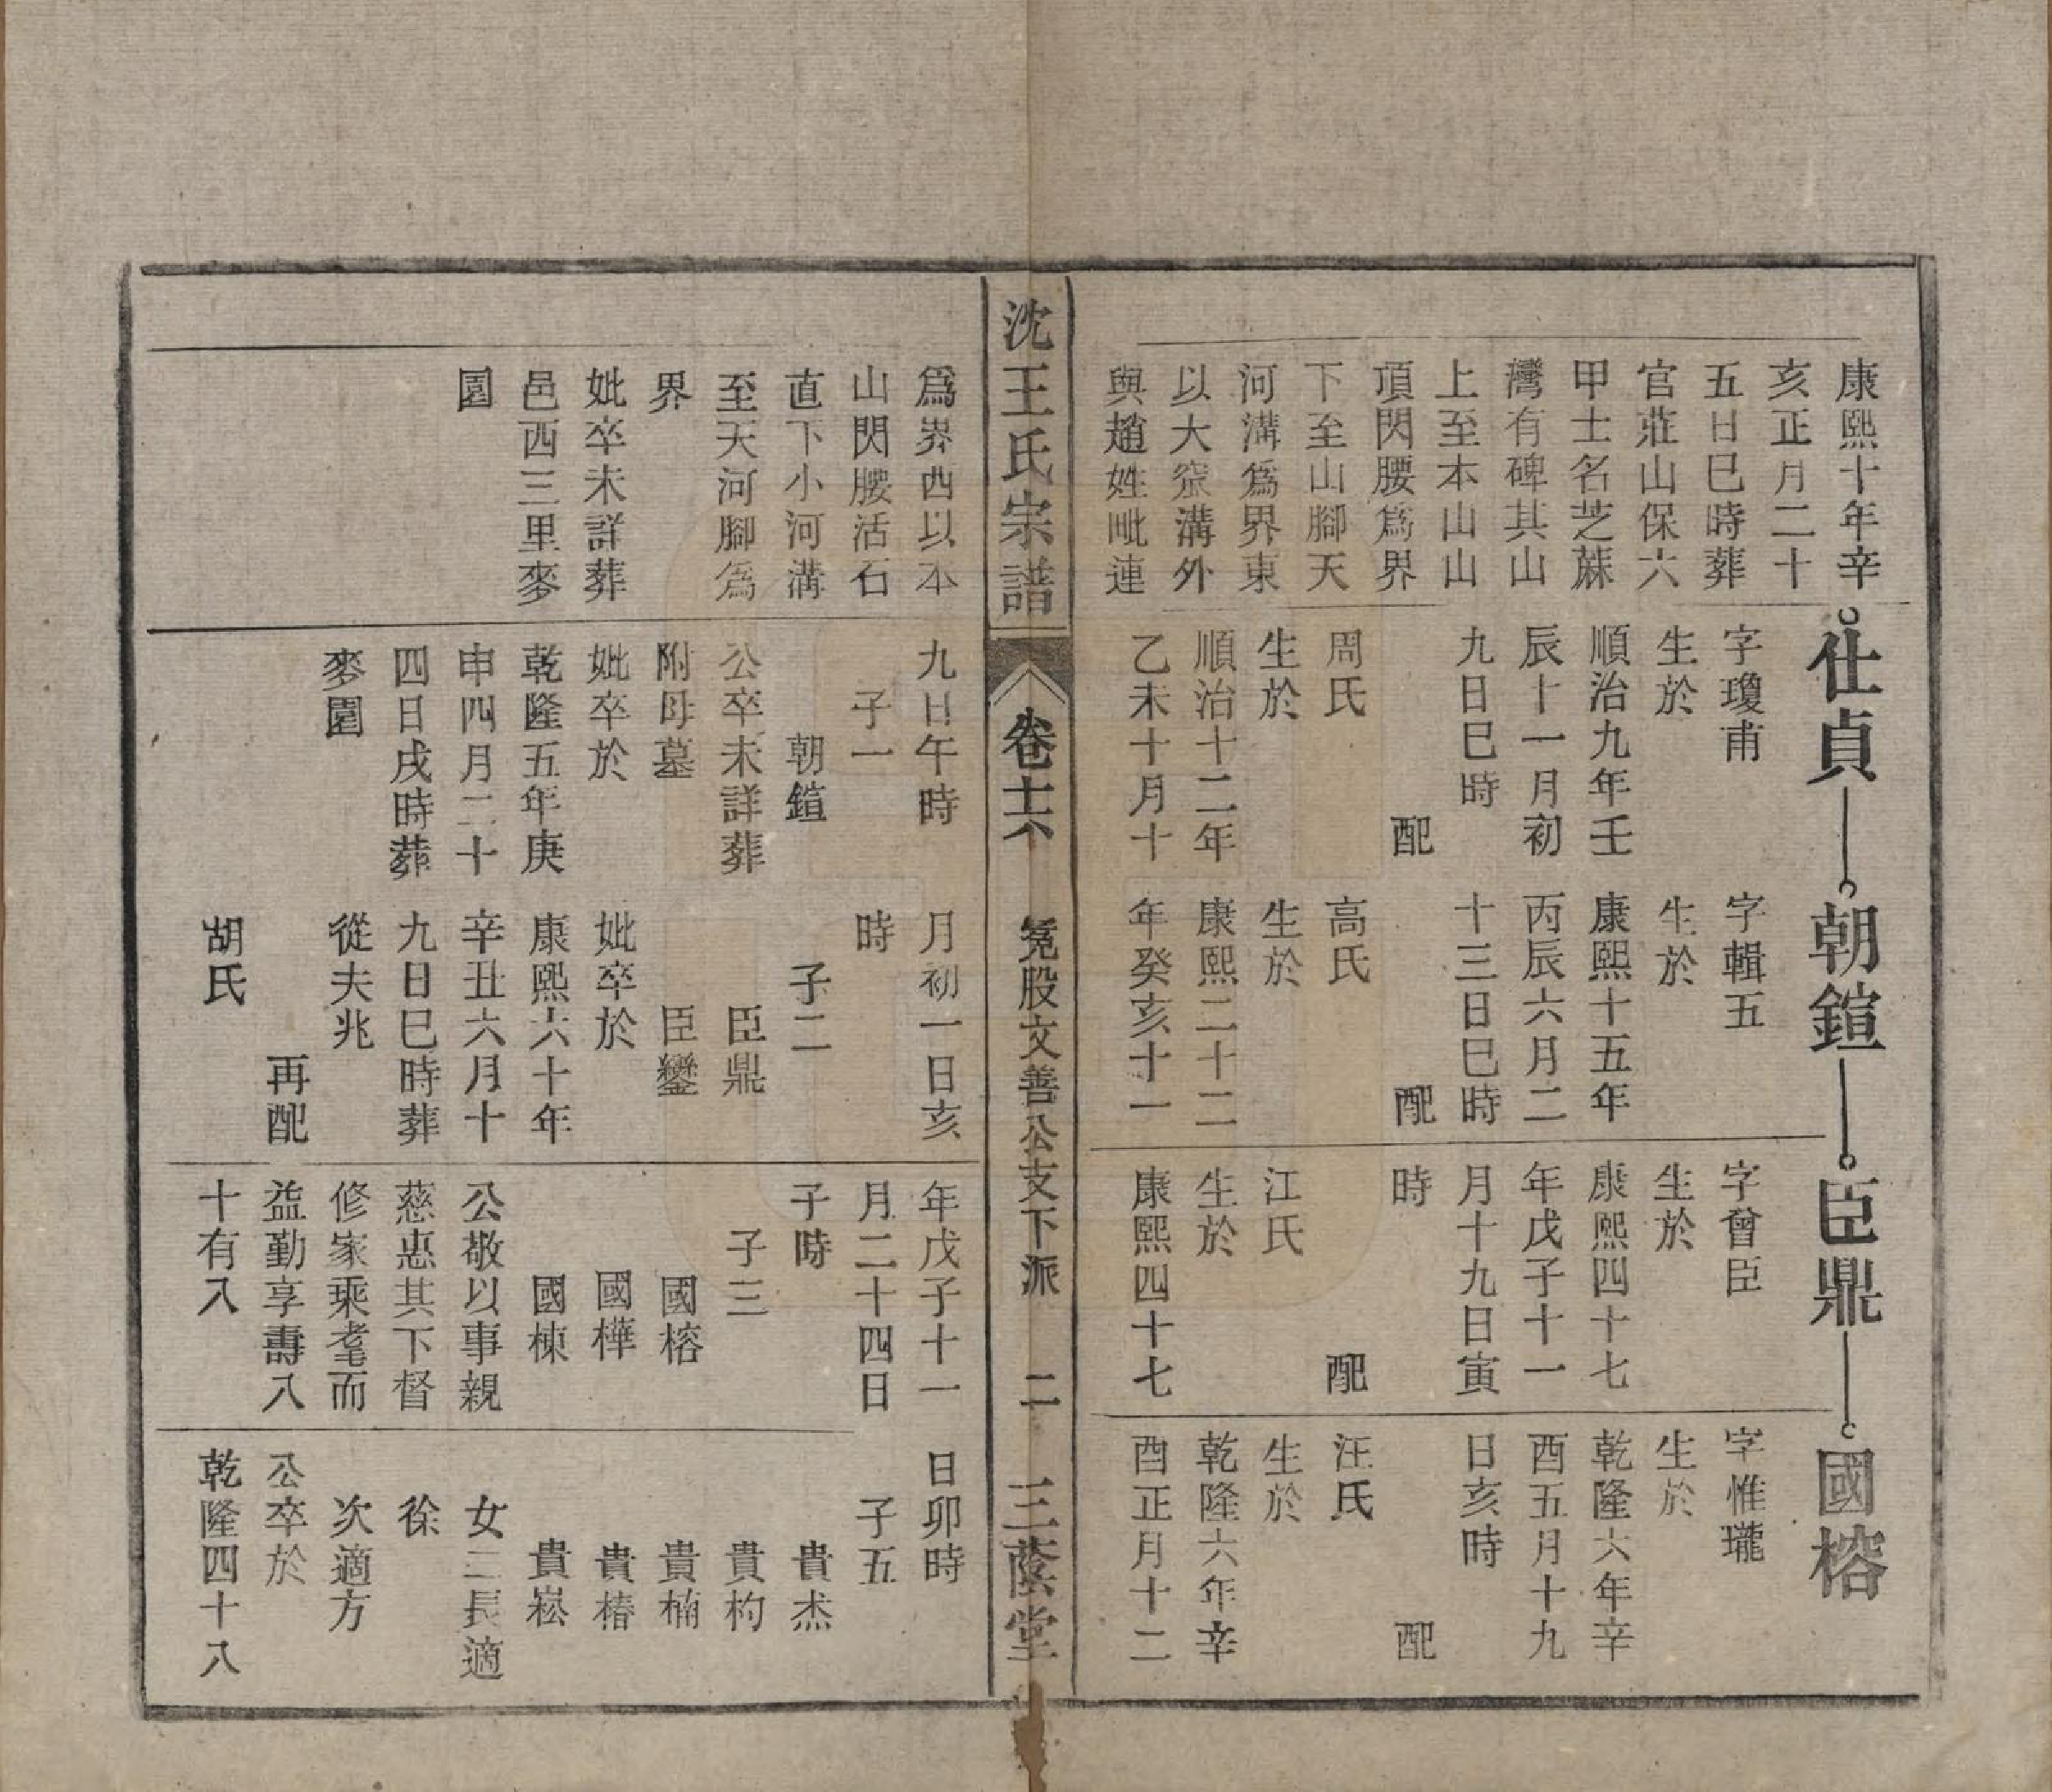 康熙十年辛
亥正月二十
五日巳時葬
官莊山保六
甲士名芝蔴
灣有碑其山
上至本山山
頂閃腰爲界
下至山腳天
河溝爲界東
以大窰溝外
與趙姓毗連
仕貞
字瓊甫
生於
順治九年壬
辰十一月初
九日巳時
配
周氏
生於
順治十二年
乙未十月十
朝鎧
字輯五
生於
康熙十五年
丙辰六月二
十三日巳時
配
高氏
生於
康熙二十二
年癸亥十一
臣鼎
字曾臣
生於
康熙四十七
年戊子十一
月十九日寅
時
配
江氏
生於
康熙四十七
國榕
字惟瓏
生於
乾隆六年辛
酉五月十九
日亥時
配
汪氏
生於
乾隆六年辛
酉正月十二
沈王氏宗譜
卷十六
冕股文善公支下派
二
三蔭堂
爲界西以本
山閃腰活石
直下小河溝
至天河腳爲
界
妣卒未詳葬
邑西三里麥
園
九日午時
子一
朝鎧
公卒未詳葬
附母墓
妣卒於
乾隆五年庚
申四月二十
四日戌時葬
麥園
月初一日亥
時
子二
臣鼎
臣鑾
妣卒於
康熙六十年
辛丑六月十
九日巳時葬
從夫兆
再配
胡氏
年戊子十一
月二十四日
子時
子三
國榕
國樺
國棟
公敬以事親
慈惠其下督
修家乘耄而
益勤享壽八
十有八
日卯時
子五
貴杰
貴杓
貴楠
貴椿
貴崧
女二長適
徐
次適方
公卒於
乾隆四十八